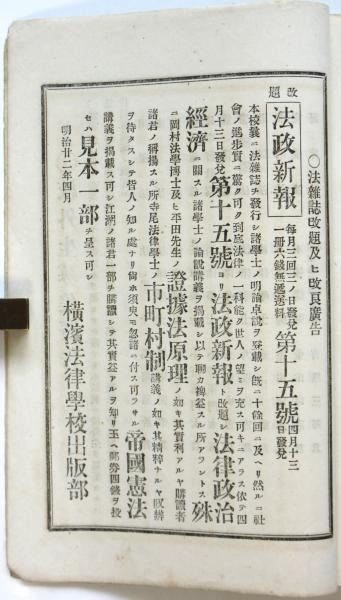 ○法雜誌改題及ヒ改良廣告
改題
法政新報
每月三回三ノ日發兌
一冊六錢無遞送料
第十五號
四月十三日發兌
本校曩ニ法雜誌ヲ發行シ諸學士ノ明論卓說ヲ登載シ既ニ十餘回ニ及ヘリ然ルニ社
會ノ進步實ニ驚ク可ク到底法律ノ一科能ク世人ノ望ミヲ充ス可キニアラス依テ四
月十三日發兌第十五號ヨリ法政新報ト改題シ法律政治
經濟ニ關スル諸學士ノ論說講義ヲ揭載シ以テ聊カ裨益スル所アラントス殊
ニ岡村法學博士及ヒ平田先生ノ證據法原理ノ如キ其實利アルヤ購讀者
諸君ノ稱揚スル所寺尾法律學士ノ市町村制講義ノ如キ其精粹ナルヤ呶辨
ヲ待タスシテ皆人ノ知ル處ナリ尙ホ須臾モ忽諸ニ付ス可ラサル帝國憲法
講義ヲ揭載ス可シ江湖ノ諸君一部ヲ購讀シテ其實益アルヲ知リ玉ヘ郵券四錢ヲ投
セハ見本一部ヲ呈ス可シ
明治廿二年四月
橫濱法律學校出版部